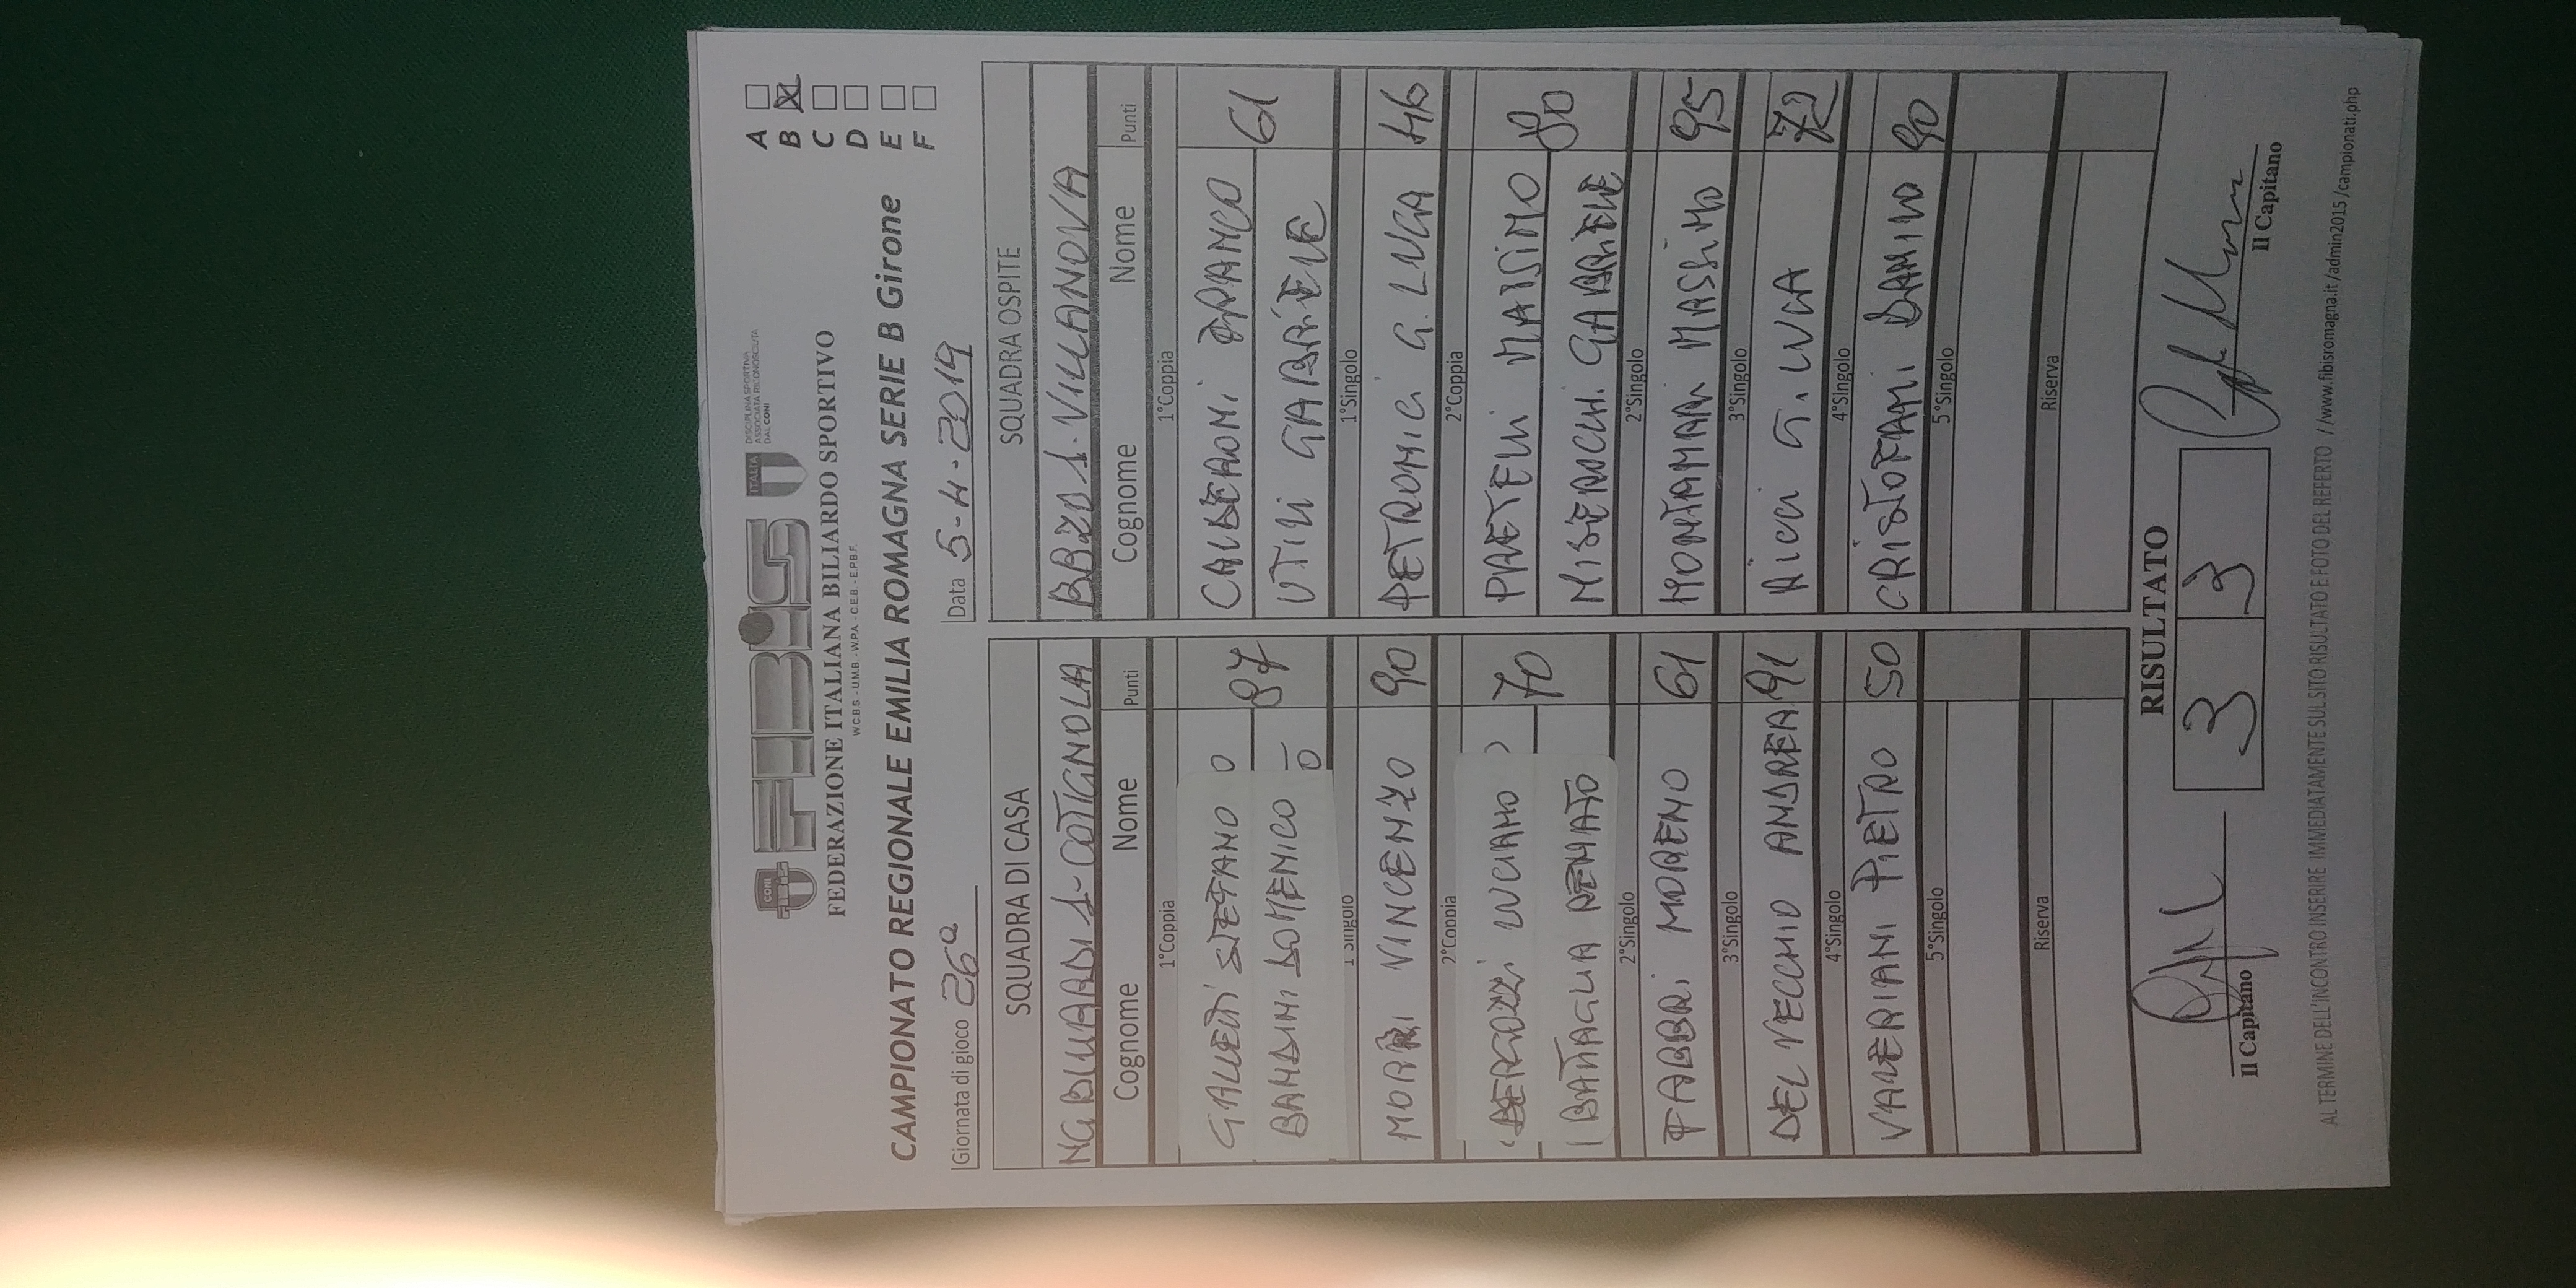 CONI
FIBiS
ITALIA
DISCIPLINA SPORTIVA
ASSOCIATA RICONOSCIUTA
DAL CONI
FEDERAZIONE ITALIANA BILIARDO SPORTIVO
W.C.B.S - U.M.B - W.P.A - C.E.B. - E.P.B.F.
CAMPIONATO REGIONALE EMILIA ROMAGNA SERIE B Girone
A
B X
C
D
E
F
Giornata di gioco 26ª
Data 5-4-2019
SQUADRA DI CASA
SQUADRA OSPITE
COTIGNOLA
VILLANOVA
Cognome Nome Punti
Cognome Nome Punti
1°Coppia
1°Coppia
GALLETTI STEFANO
CALDERONI FRANCO
87
61
BANDINI DOMENICO
UTILI GABRIELE
1°Singolo
1°Singolo
MORRI VINCENZO 90
PETRONICI G. LUCA 46
2°Coppia
2°Coppia
LUCIANO
PRETELLI MASSIMO
70
80
BATTAGLIA RENATO
MISEROCCHI GABRIELE
2°Singolo
2°Singolo
FABBRI MORENO 61
MONTANARI MASSIMO 95
3°Singolo
3°Singolo
DEL VECCHIO ANDREA 91
RICCI G. LUCA 72
4°Singolo
4°Singolo
VALERIANI PIETRO 50
CRISTOFANI DANILO 90
5°Singolo
5°Singolo
Riserva
Riserva
RISULTATO
3 3
Il Capitano
Il Capitano
AL TERMINE DELL'INCONTRO INSERIRE IMMEDIATAMENTE SUL SITO RISULTATO E FOTO DEL REFERTO //www.fibisromagna.it/admin2015/campionati.php